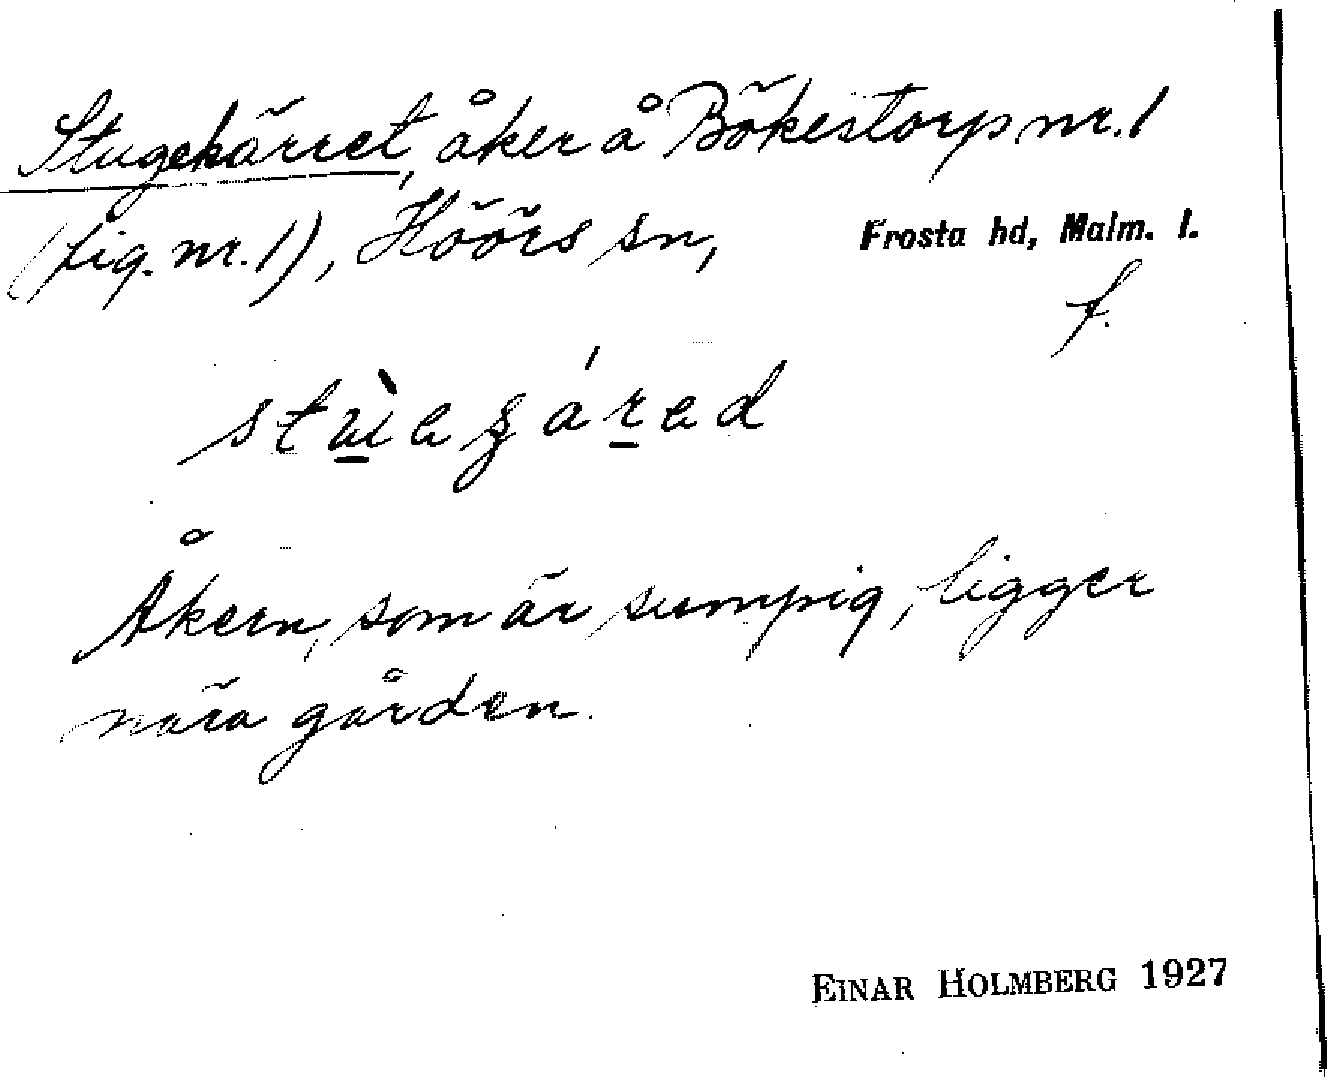 Stugekärret, åker å Bökestorp nr. 1
(fig. nr. 1), Höörs sn, Frosta hd, Malm. l.
f.
Åkern, som är sumpig, ligger
nära gården.
EINAR HOLMBERG 1927